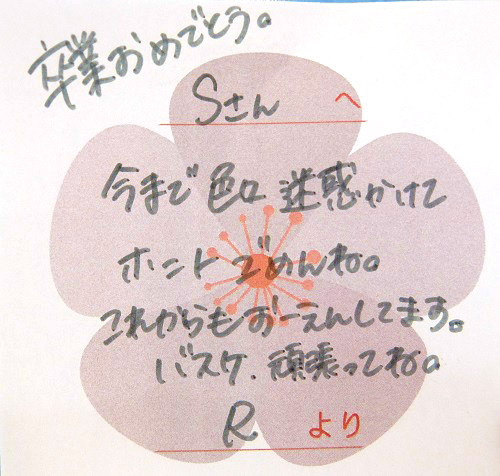 卒業おめでとう。
Sさん へ
今まで色々迷惑かけて
ホントごめんね。
これからもおーえんしてます。
バスケ、頑張ってね。
R より